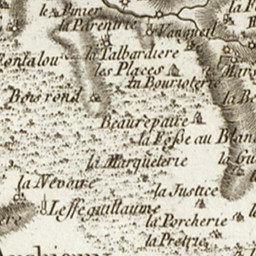 le Pinier
la Parentrie
Vangueil
la Talbardiere
les Places
la Bourioterie
Bois rond
Beaurepaire
la Fosse au Blanc
la Marqueterie
la Nevoire
la Justice
Lesseguillaume
la Porcherie
la Pretrie